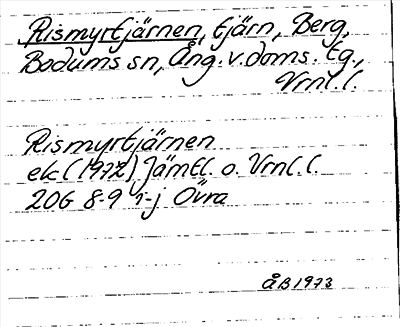 Rismyrtjärnen, tjärn, Berg,
Bodums sn, Ång. v. doms. tg.,
Vrnl. l.
Rismyrtjärnen
ek (1972) Jämtl. o. Vrnl. l.
20G 8-9 i-j Övra
ÅB 1973